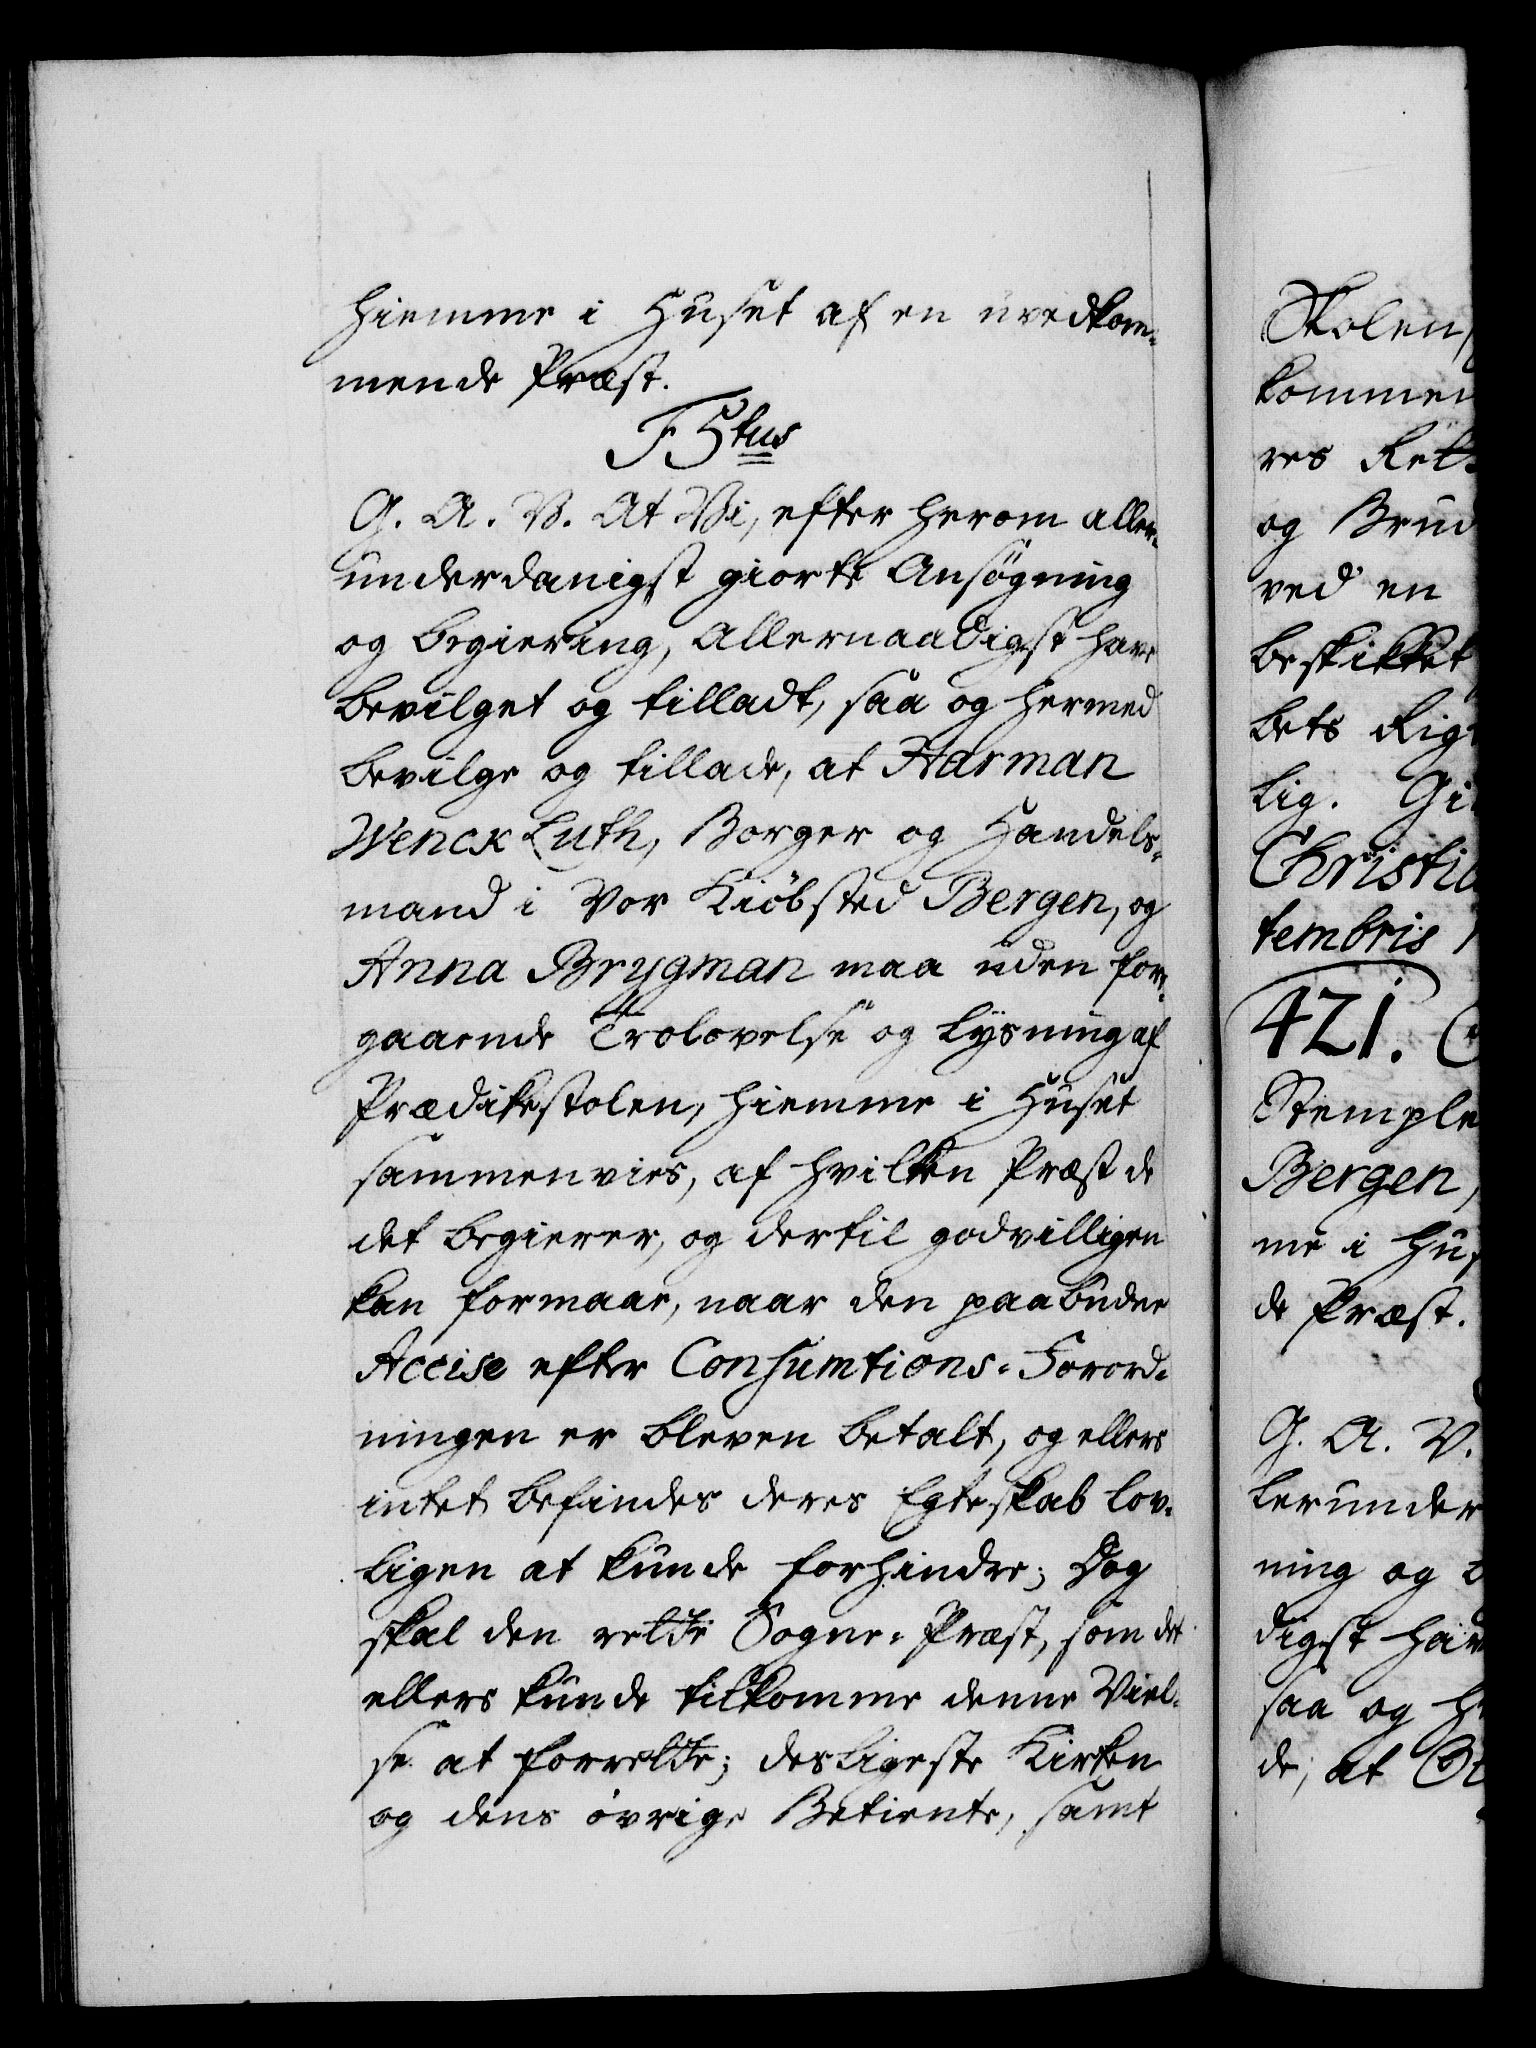 hiemme i Huset af en uvedkom-
mende Præst.
F5tus
G. A. V. At Vi, efter herom aller-
underdanigst giorte Ansøgning
og begiering, Allernaadigst have
bevilget og tilladt, saa og hermed
bevilge og tillade, at Harman
Wenck Luth, Borger og Handels-
mand i Vor Kiøbsted Bergen, og
Anna Brygman maa uden for-
gaaende Trolovelse og Lysning af
Prædikestolen, hiemme i Huset
sammenvies, af hvilken Præst de
det begierer, og dertil godvilligen
kan formaae, naar den paabudne
Accise efter Consumtions-Forord-
ningen er bleven betalt, og ellers
intet befindes deres Egteskab lov-
ligen at kunde forhindre; Dog
skal den rette Sogne-Præst, som det
ellers kunde tilkomme denne Viel-
se at forrette; desligeste Kirken
og dens øvrige Betiente, samt
Skolen,
kommen
res Rett
og Brud
ved en
beskikket
bets Rig
lig. Gi
Christia
tembris
421.
Stemple
Bergen,
me i Hus
de Præst.
G. A. V.
lerunder
ning og b
digst hav
saa og h
de, at